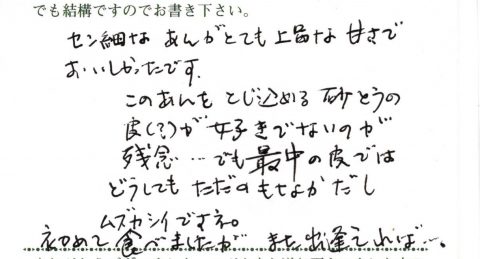 でも結構ですのでお書き下さい。
セン細な あんがとても 上品な 甘さで
おいしかったです。
このあんを とじ込める 砂とうの
皮(?)が 好きでないのが
残念… でも 最中の皮では
どうしても ただの もなか だし
ムズカシイですネ。
初めて 食べましたが また 出逢えれば…。